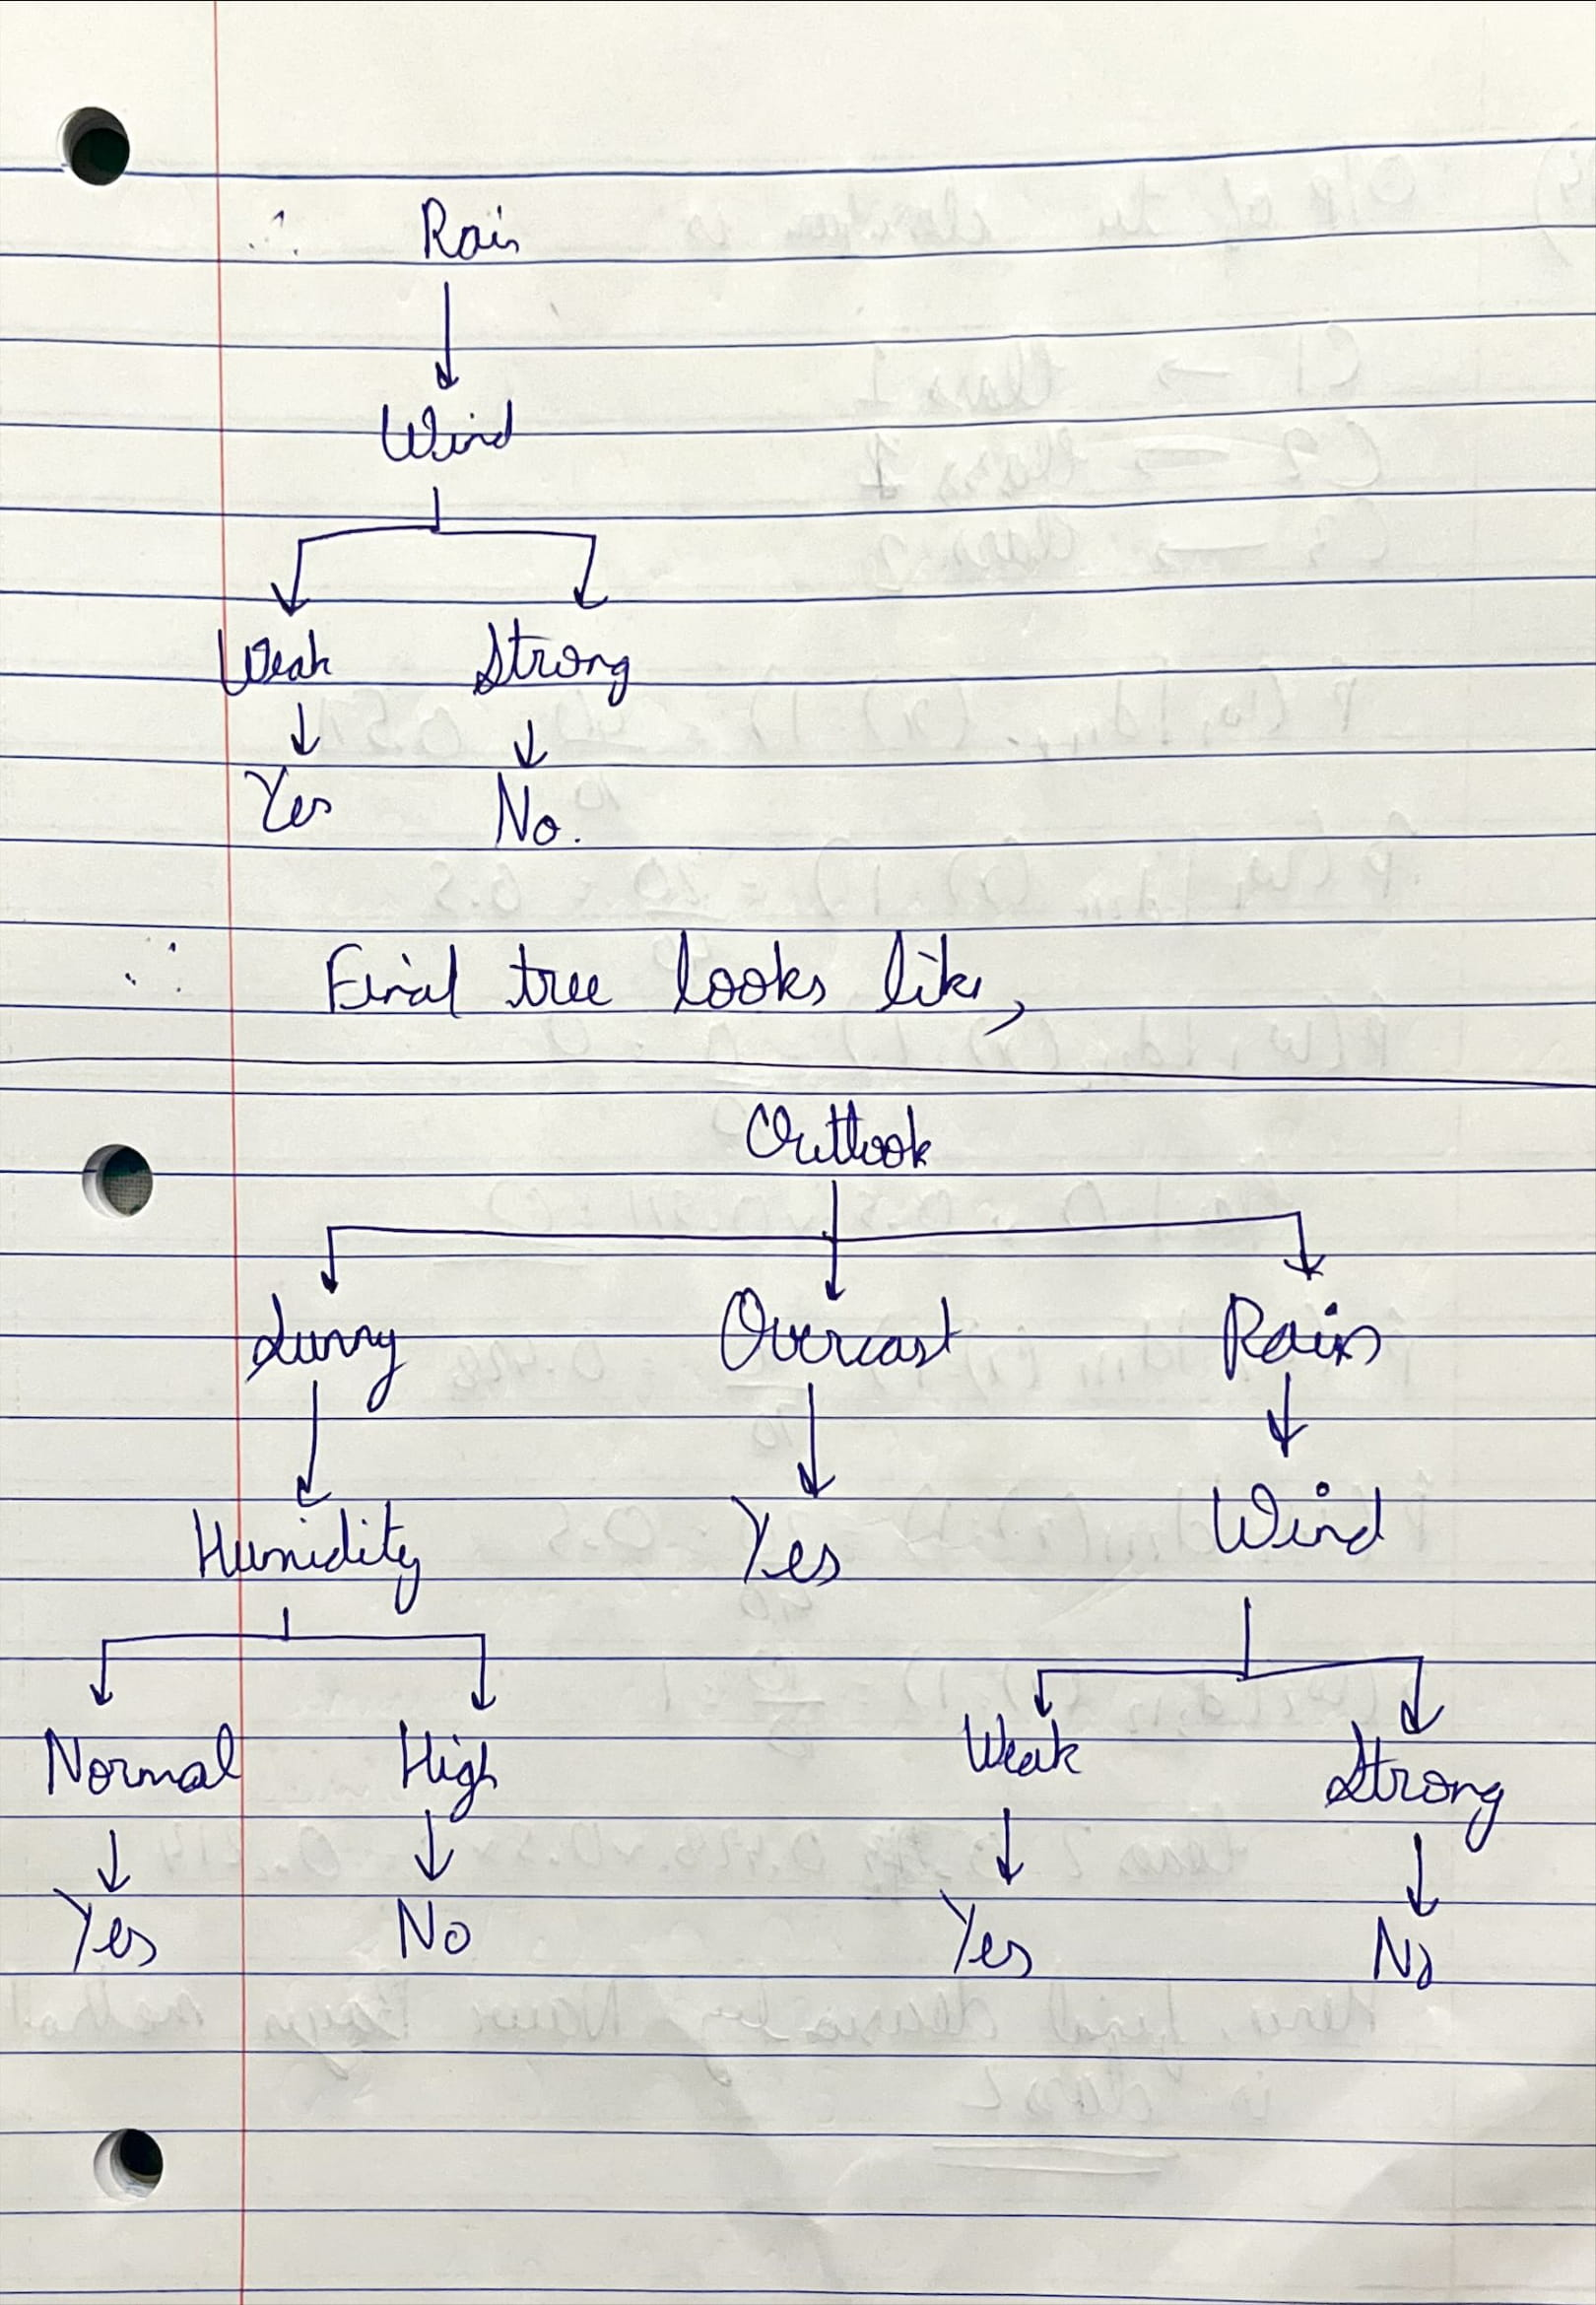 ∴ Rain
Wind
Weak Strong
Yes No.
∴ Final tree looks like,
Outlook
Sunny Overcast Rain
Humidity Yes Wind
Normal High Weak Strong
Yes No Yes No